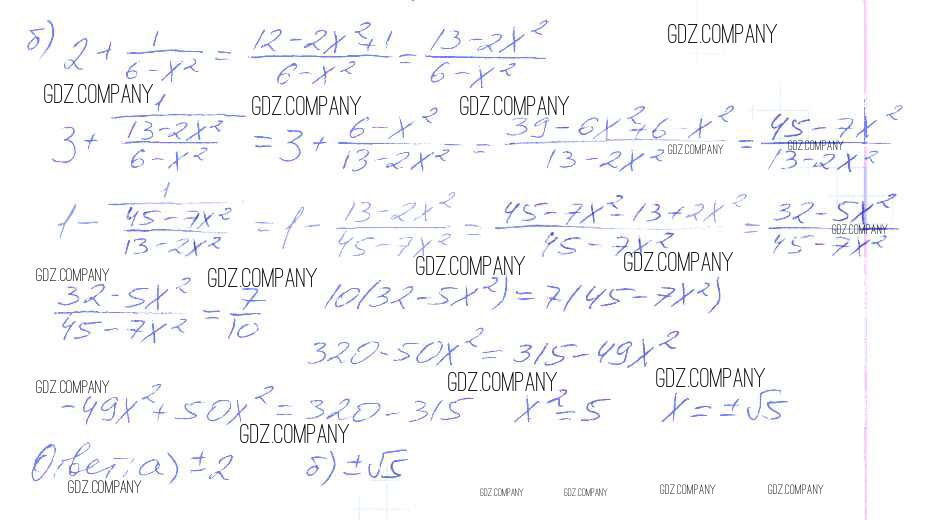 б) 2 + 1/(6-x²) = (12-2x²+1)/(6-x²) = (13-2x²)/(6-x²)
GDZ.COMPANY
GDZ.COMPANY GDZ.COMPANY GDZ.COMPANY
3 + 1/((13-2x²)/(6-x²)) = 3 + (6-x²)/(13-2x²) = (39-6x²+6-x²)/(13-2x²) = (45-7x²)/(13-2x²)
GDZ.COMPANY GDZ.COMPANY
1 - 1/((45-7x²)/(13-2x²)) = 1 - (13-2x²)/(45-7x²) = (45-7x²-13+2x²)/(45-7x²) = (32-5x²)/(45-7x²)
GDZ.COMPANY
GDZ.COMPANY GDZ.COMPANY GDZ.COMPANY GDZ.COMPANY
(32-5x²)/(45-7x²) = 7/10 10(32-5x²) = 7(45-7x²)
320-50x² = 315-49x²
GDZ.COMPANY GDZ.COMPANY GDZ.COMPANY
-49x²+50x² = 320-315 x²=5 x=±√5
GDZ.COMPANY
Ответ: а) ±2 б) ±√5
GDZ.COMPANY GDZ.COMPANY GDZ.COMPANY GDZ.COMPANY GDZ.COMPANY